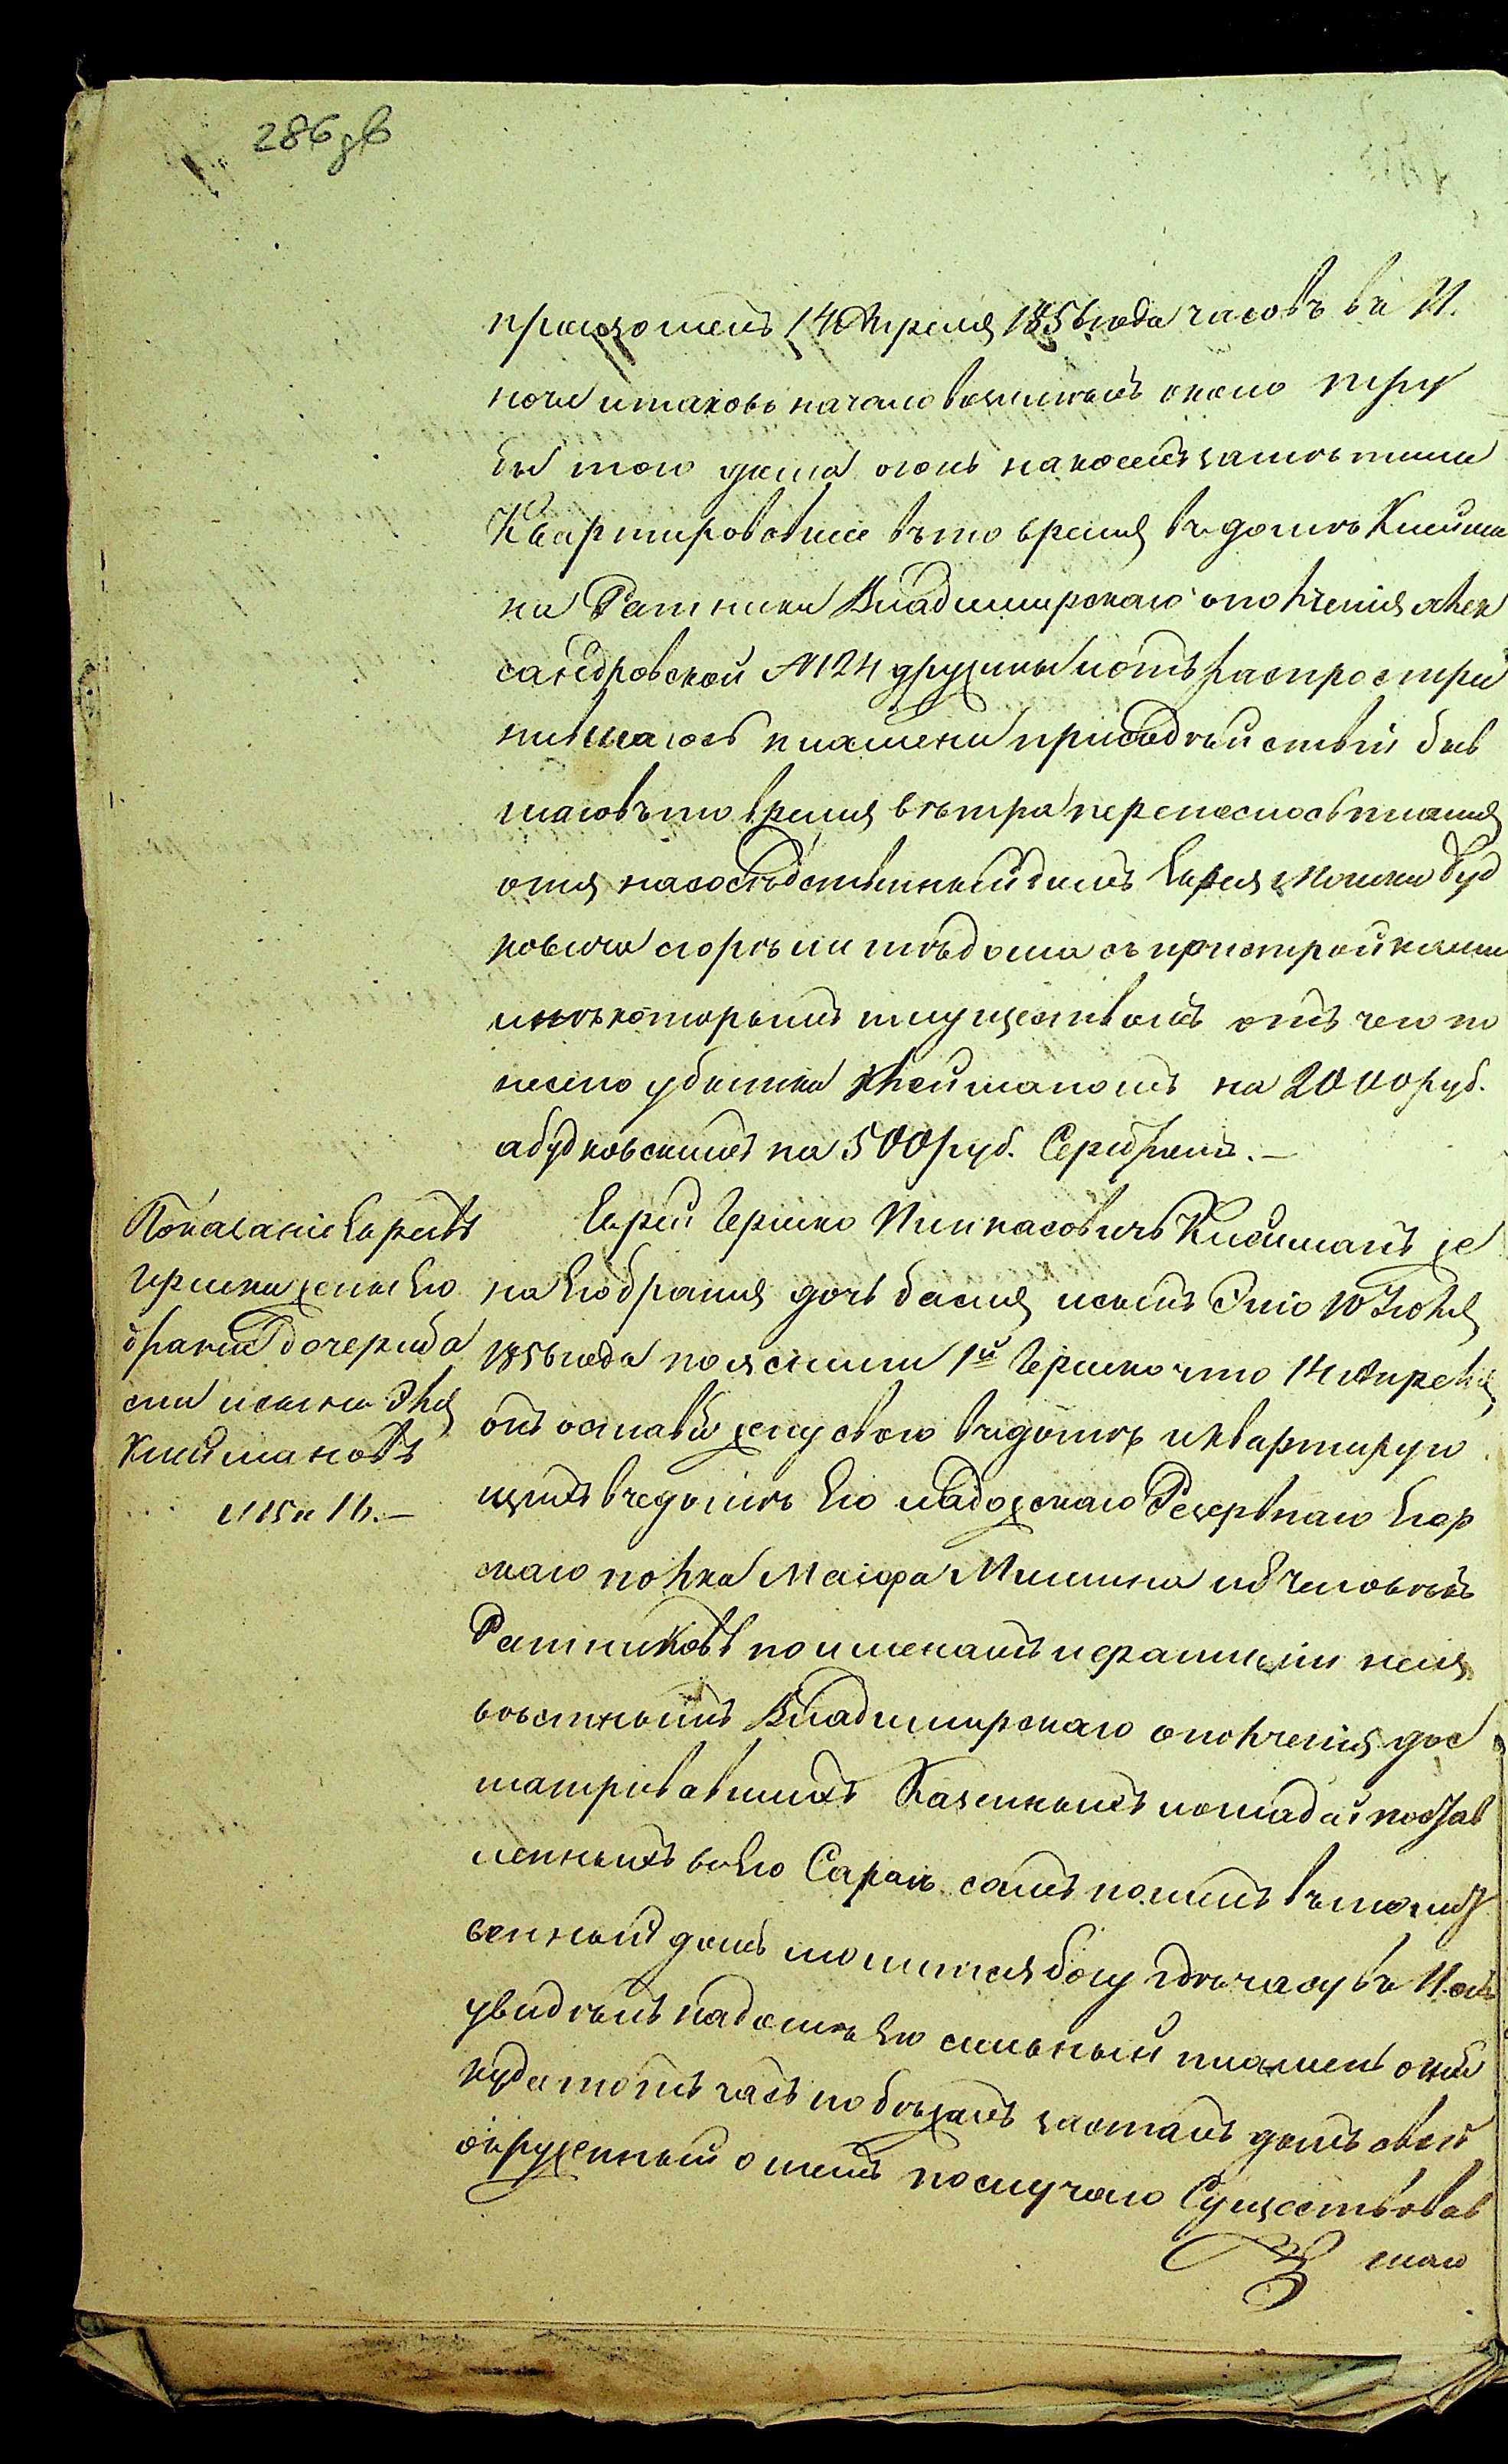 286 зв
произошелъ 14 Апреля 1856 года часовъ въ 11.
ночи и таковъ начало возимѣлъ около тру
бы того дома огонь на коемъ замѣтили
Квартировавшее въ то время въ домѣ Клейма
на Ратники Владимирскаго ополченія Алек
сандровской № 124 дружины и отъ распростра
нившагося пламени при содѣйствіи быв
шаго въ то время вѣтра перенеслось пламя
огня на сосѣдственный домъ Еврея Мошки Буд
ковскаго сгорѣли тѣ дома съ пристройками
и нѣкоторымъ имуществомъ отъ чего по
несено убытка Клейманомъ на 2000 руб.
а Будковскимъ на 500 руб. Серебромъ.—
Показаніе Евреевъ
Гершки жены Его
брани дочери Ба
си и сына Эля
Клеймановъ
№ 15 и 16.—
Еврей Гершко Пинкасовичъ Клейманъ же
на Его Браня дочь Бася и сынъ Элю 10 Іюля
1856 года пояснили 1й Гершко что 14 Апреля
онъ оставя жену свою въ домѣ и квартирую
щихъ въ домѣ Его Ладожскаго Резервнаго Егер
скаго полка Маіора Мишина и 8 человѣкъ
Ратниковъ по именамъ и фамиліи неиз
вѣстнымъ Владимирскаго ополченія дос
матривавшихъ Казенныхъ лошадей постав
ленныхъ въ Его Сараѣ самъ пошелъ въ молит
венный домъ молится богу гдѣ часу въ 11. онъ
увидѣлъ надъ домомъ Его сильный пламень огня
куда тотъ часъ побѣжалъ засталъ домъ свой
окруженный огнемъ по случаю Существовав
шаго